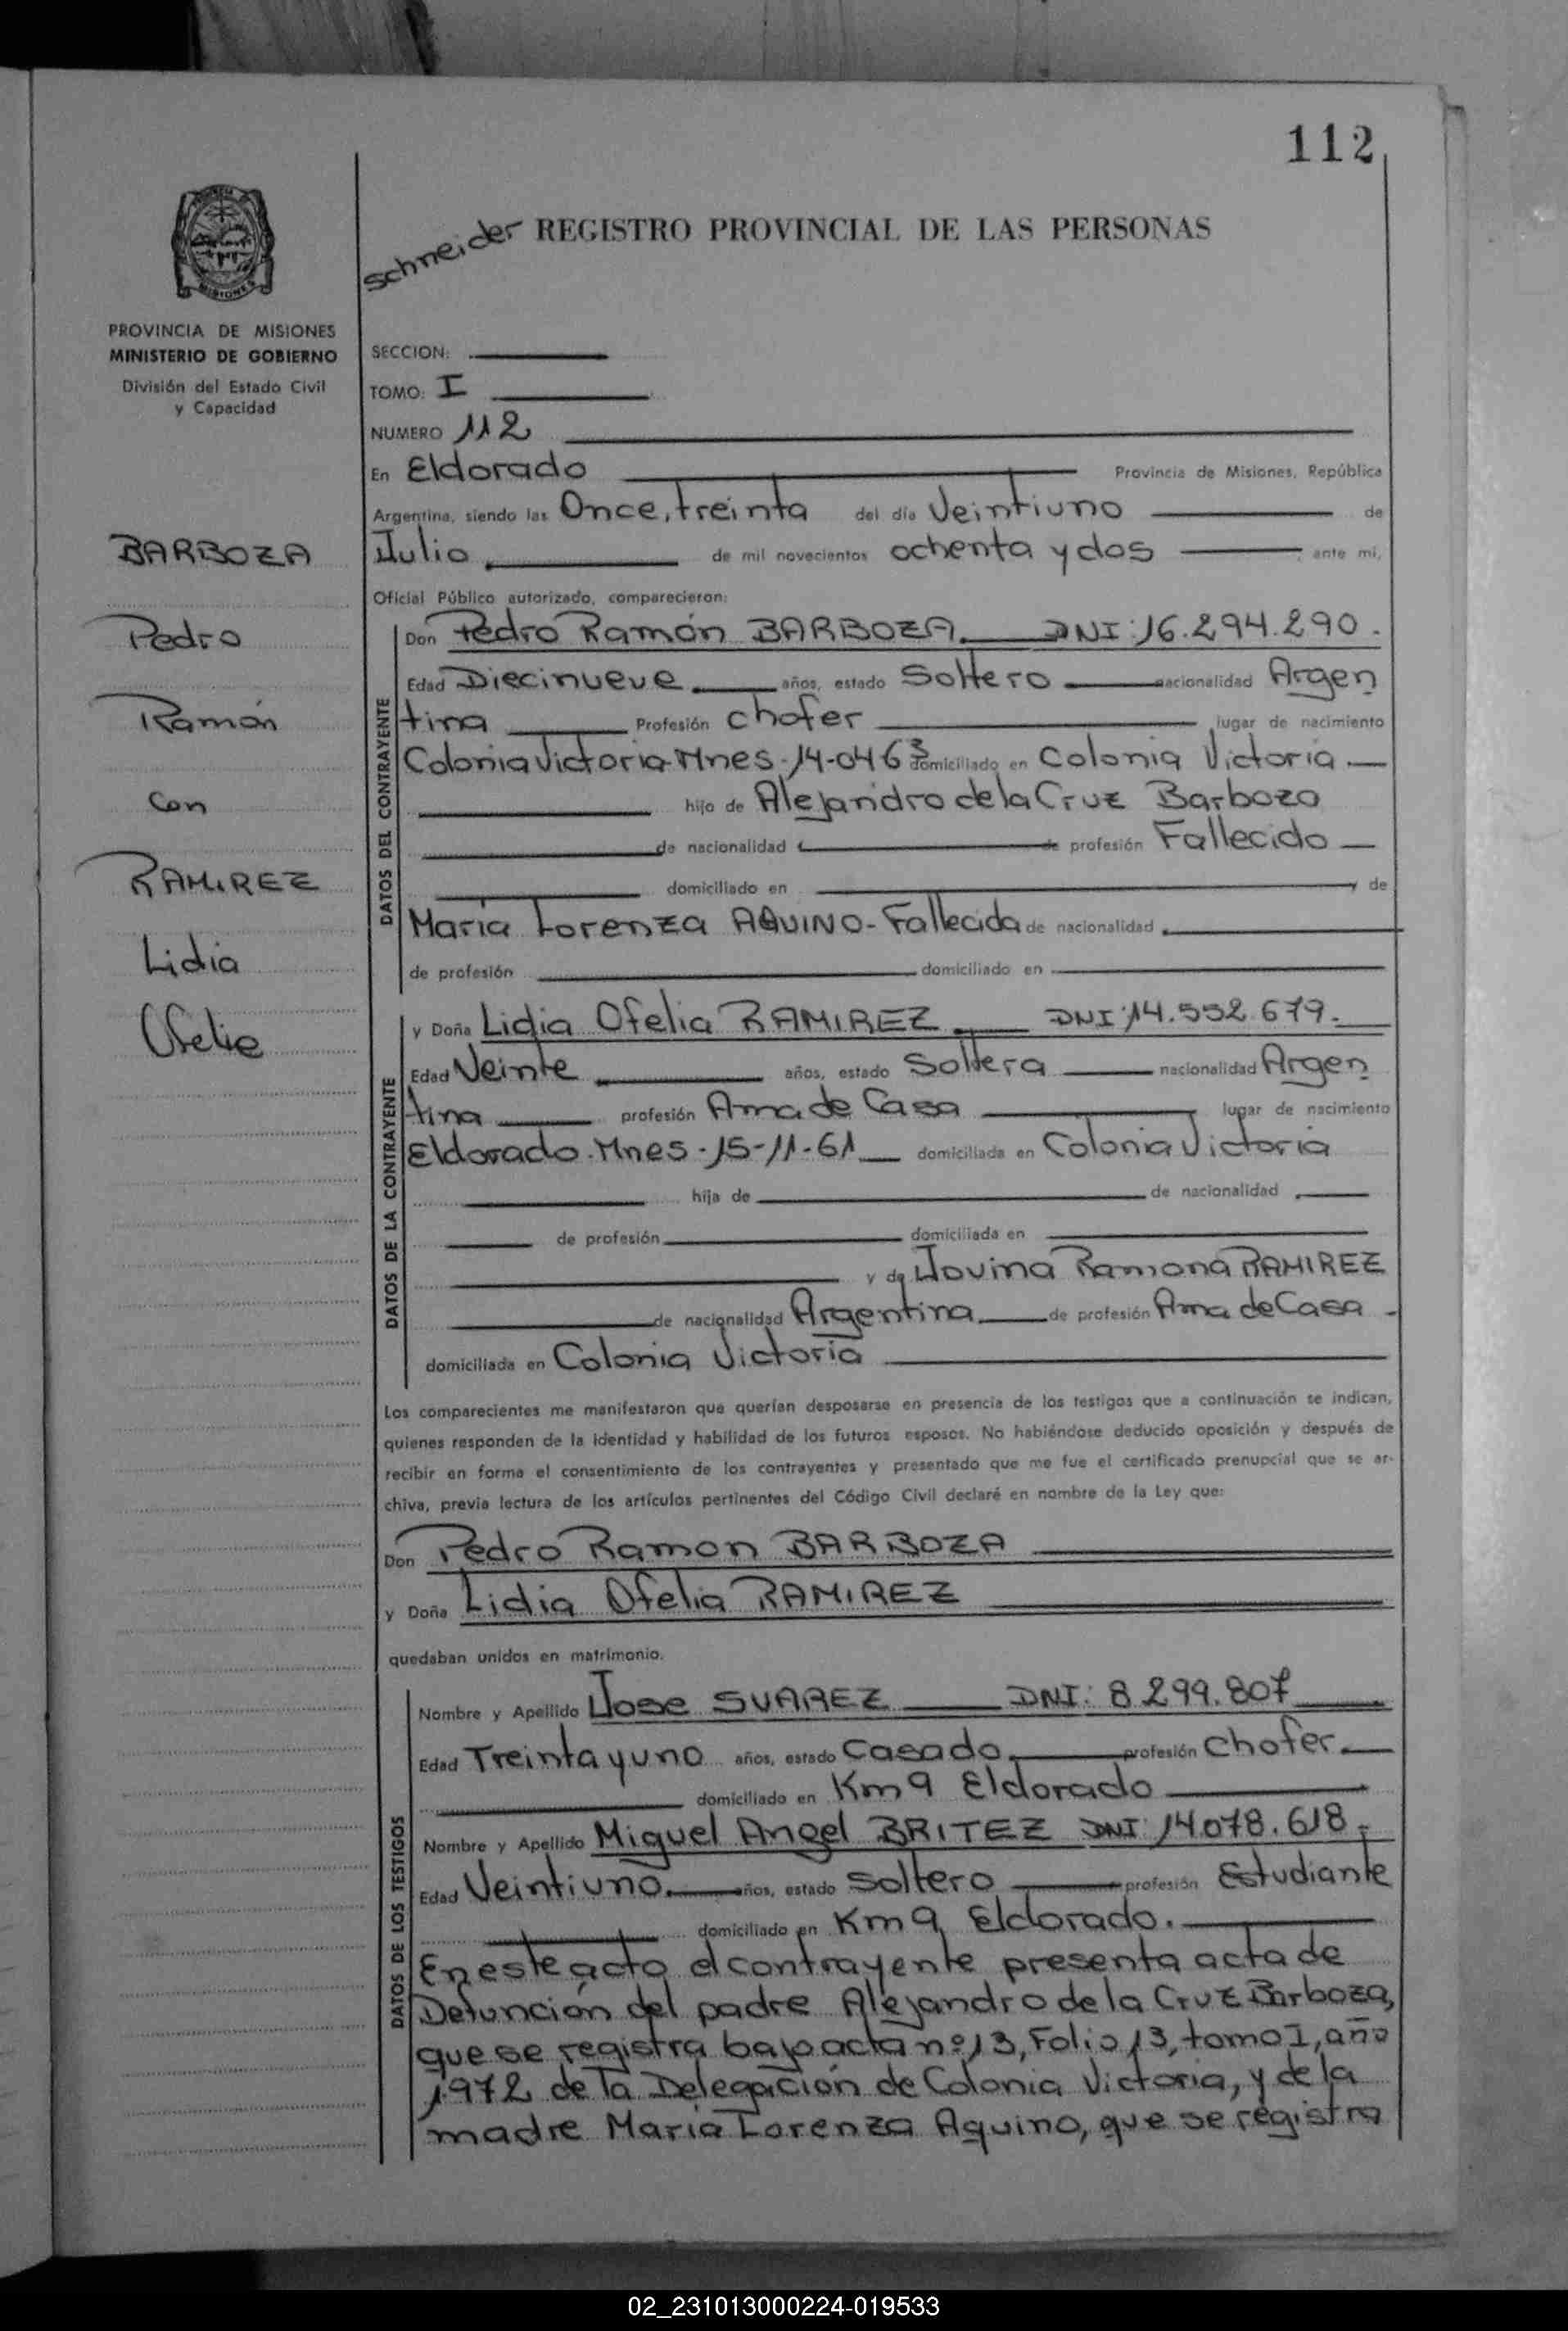 112
schneider REGISTRO PROVINCIAL DE LAS PERSONAS
PROVINCIA DE MISIONES
MINISTERIO DE GOBIERNO
División del Estado Civil
y Capacidad
BARBOZA
Pedro
Ramón
con
RAMIREZ
Lidia
Ofelia
SECCION:
TOMO: I
NUMERO 112
En Eldorado Provincia de Misiones, República
Argentina, siendo las Once, treinta del día Veintiuno de
Julio de mil novecientos ochenta y dos ante mi,
Oficial Público autorizado, comparecieron:
DATOS DEL CONTRAYENTE
Don Pedro Ramón BARBOZA. DNI: 16.294.290.
Edad Diecinueve años, estado Soltero nacionalidad Argen
tina Profesión chofer lugar de nacimiento
Colonia Victoria-Mnes-14-04-63 domiciliado en Colonia Victoria
hijo de Alejandro de la Cruz Barbozo
de nacionalidad de profesión Fallecido
domiciliado en de
María Lorenza AQUINO-Fallecida de nacionalidad
de profesión domiciliado en
DATOS DE LA CONTRAYENTE
y Doña Lidia Ofelia RAMIREZ DNI: 14.552.679.
Edad Veinte años, estado Soltera nacionalidad Argen
tina profesión Ama de Casa lugar de nacimiento
Eldorado-Mnes-15-11-61 domiciliada en Colonia Victoria
hija de de nacionalidad
de profesión domiciliada en
y de Jovina Ramona RAMIREZ
de nacionalidad Argentina de profesión Ama de Casa -
domiciliada en Colonia Victoria
Los comparecientes me manifestaron que querían desposarse en presencia de los testigos que a continuación se indican,
quienes responden de la identidad y habilidad de los futuros esposos. No habiéndose deducido oposición y después de
recibir en forma el consentimiento de los contrayentes y presentado que me fue el certificado prenupcial que se ar-
chiva, previa lectura de los artículos pertinentes del Código Civil declaré en nombre de la Ley que:
Don Pedro Ramon BARBOZA
y Doña Lidia Ofelia RAMIREZ
quedaban unidos en matrimonio.
DATOS DE LOS TESTIGOS
Nombre y Apellido Jose SUAREZ DNI: 8.299.807
Edad Treinta y uno años, estado Casado profesión Chofer.
domiciliado en Km 9 Eldorado
Nombre y Apellido Miguel Angel BRITEZ DNI: 14.078.618.
Edad Veintiuno. años, estado Soltero profesión Estudiante
domiciliado en Km 9 Eldorado.
En este acto el contrayente presenta acta de
Defunción del padre Alejandro de la Cruz Barboza,
que se registra bajo acta nº 13, Folio 13, tomo I, año
1972 de la Delegación de Colonia Victoria, y de la
madre María Lorenza Aquino, que se registra
02_231013000224-019533